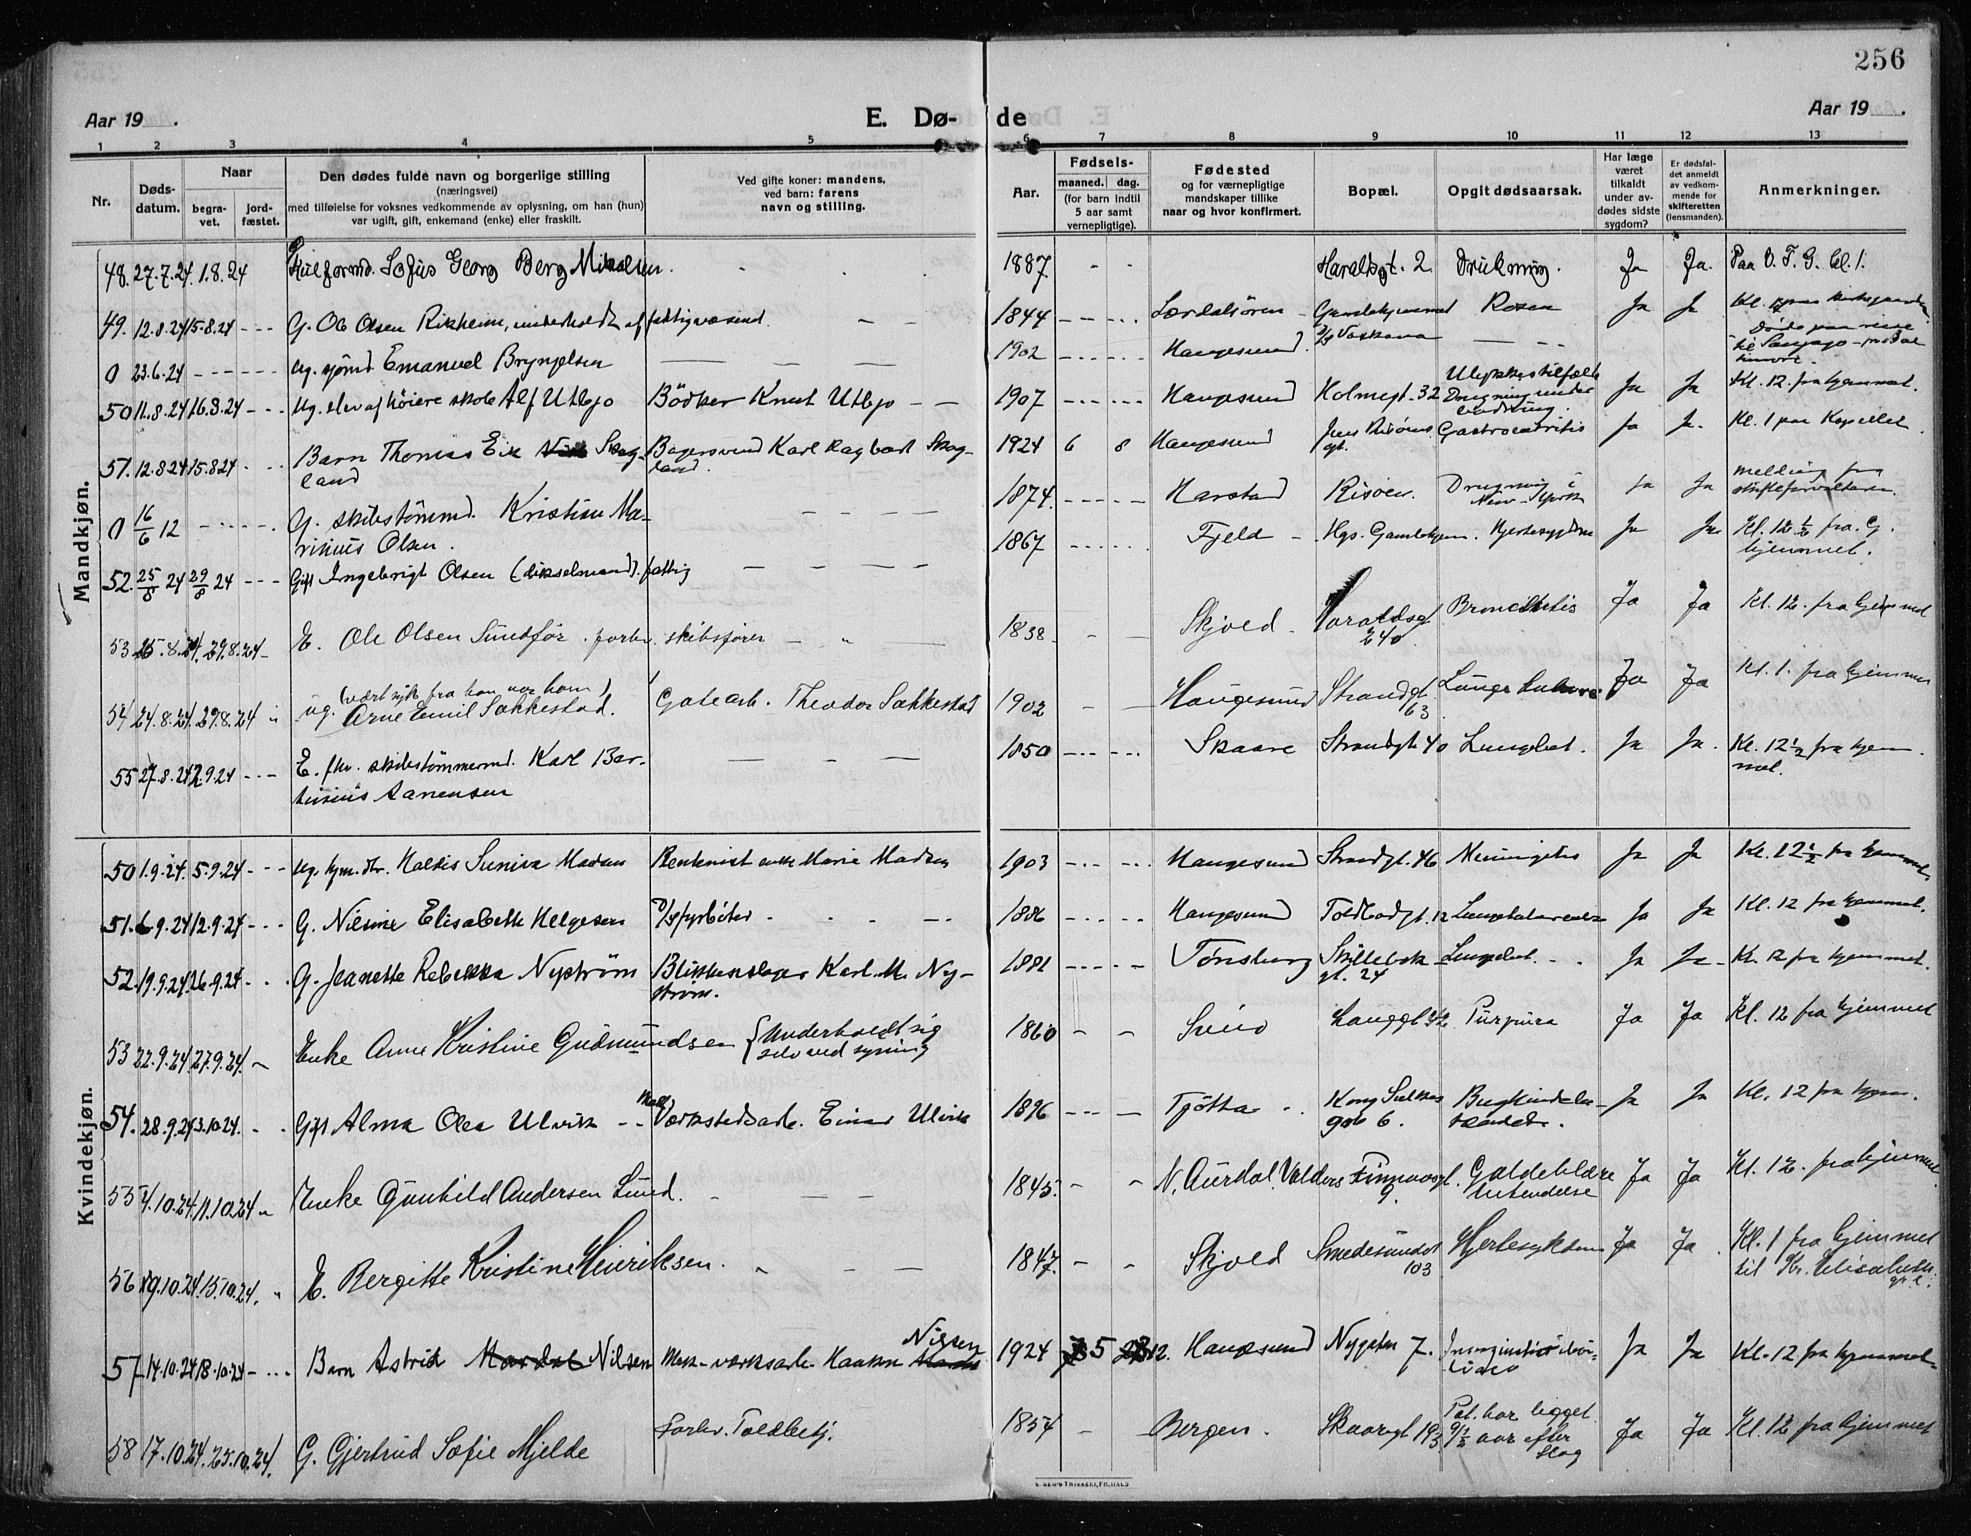 256
Aar 19 .
E. Dø- de
Aar 19 .
1 2 3 4 5 6 7 8 9 10 11 12 13
Nr.
Døds-
datum.
Naar
begra-
vet.
jord-
fæstet.
Den dødes fulde navn og borgerlige stilling
(næringsvei)
med tilføielse for voksnes vedkommende av oplysning, om han (hun)
var ugift, gift, enkemand (enke) eller fraskilt.
Ved gifte koner: mandens,
ved barn: farens
navn og stilling.
Aar.
Fødsels-
maaned. dag.
(for barn indtil
5 aar samt
vernepligtige).
Fødested
og for værnepligtige
mandskaper tillike
naar og hvor konfirmert.
Bopæl.
Opgit dødsaarsak.
Har læge
været
tilkaldt
under av-
dødes sidste
sygdom?
Er dødsfal-
det anmeldt
av vedkom-
mende for
skifteretten
(lensmanden).
Anmerkninger.
Mandkjøn.
48. 27.7.24. 1.8.24 Sofus Georg Berg Mikalsen. 1887 - - Haraldsgt. 2 Drukning. Ja Ja. Paa O. F. G. kl. 1.
49. 12.8.24 15.8.24 - - - G. Ole Olsen Rikheim, underholdt af fattigvæsend. 1844 Lærdalsören - Ja Ja
0 23.6.24 ug. sjömd. Emanuel Brynjelsen 1902 Haugesund
50 11.8.24 16.8.24 - - - Ug. elev af høiere skole Alf Utbjo Bödker Knut Utbjo - - 1907 Haugesund Holmegt. 32 Ulykkestilfælde Drugning under Ja Ja Kl. 12. fra hjemmet.
51. 12.8.24 15.8.24 - - - Barn Thomas Eik Skog- Bagersvend Karl Ragbart Skog- 1924 6 8 Haugesund Ja Ja. Kl. 1 paa Kapellet.
land land.
0 16/6 12 G. skibstømmd. Kristian Ma- 1874. Harstad Risøen. Drugning i Ja Ja melding fra
rinius Olsen. New-York skifteforvalteren.
52. 25/8 24 29/8 24 - - - Gift Ingebrigt Olsen (dikselmand). fattig 1867 Fjeld - Hgs. Gamlehjem. Hjertesygdom Ja Ja Kl. 12 1/2 fra G.
hjemmet.
53 25.8.24. 29.8.24 - E. Ole Olsen Sundför. forhv. skibsfører 1838. - - Skjold. Haraldsgt. Bronchitis Ja Ja Kl. 12. fra hjemmet
240.
54 24.8.24. 29.8.24 ug. Arne Emil Sakkestad. Gatearb. Theodor Sakkestad 1902 - - Haugesund Strandgt. Ja Ja Kl. 1. fra hjemmet
63.
55 27.8.24 2.9.24 - - - E. fhv. skibstømmermd. Karl Bar- 1850 Skaare Strandgt 40 Lungebet. Ja Ja. Kl. 12 1/2 fra hjem-
tinius Aanensen met.
Kvindekjøn.
50 1.9.24. 5.9.24 - - - Ug. hjm.dtr. Haldis Suniva Madsen Rentenist enke Marie Madsen 1903 Haugesund Strandgt. 46 Meningitis Ja Ja Kl. 12 1/2 fra hjemmet.
51. 6.9.24 12.9.24 - - - G. Nilsine Elisabeth Helgesen fyrbøter 1886 Haugesund Toldbodgt. 12 Ja Ja Kl. 12 fra hjemmet.
52. 19.9.24. 26.9.24 G. Jeanette Rebekka Nyström Blikkenslager Karl M. Ny- 1881 Tönsberg Skillebek- Lungebet. Ja Ja - Kl. 12 fra hjemmet.
ström. gt. 24
53 22.9.24. 27.9.24. Enke Anne Kristine Gudmundsen { Underholdt sig 1860 - - Sveio Langgt 42 Purpura Ja Ja Kl. 12 fra hjemmet
selv ved syning
54. 28.9.24 3.10.24. Gift Alma Olea Ulvik - - Mek. Værkstedsarb. Einar Ulvik 1896 Tjötta Kong Sverres Bughindebe- Ja Ja Kl. 12 fra hjem.
gate 6. tændelse.
55 4.10.24. 11.10.24 Enke Gunhild Andersen Lund. 1845. - - N. Aurdal Valders Finnaasgt. Galdeblære Ja Ja Kl. 12. fra hjemmet.
9. betendelse
56 9.10.24. 15.10.24. E. Bergitte Kristine Heinriksen. 1847. - - Skjold Smedesundet Hjertesykdom Ja Ja Kl. 1 fra hjemmet
103 til
57 14.10.24 18.10.24 - ... Barn Astrid Nilsen Mek-værksarb. Haakon Nilsen 1924 5 12. Haugesund Nygaten 7. Ja Ja Kl. 12 fra hjemmet.
58 17.10.24. 23.10.24. G. Gjertrud Sofie Mjelde Forhv. Toldbetj. 1854 - - Bergen. Skaaregt 193 Pat. har ligget Ja Ja Kl. 12 fra hjemmet
9 1/2 aar efter
slag